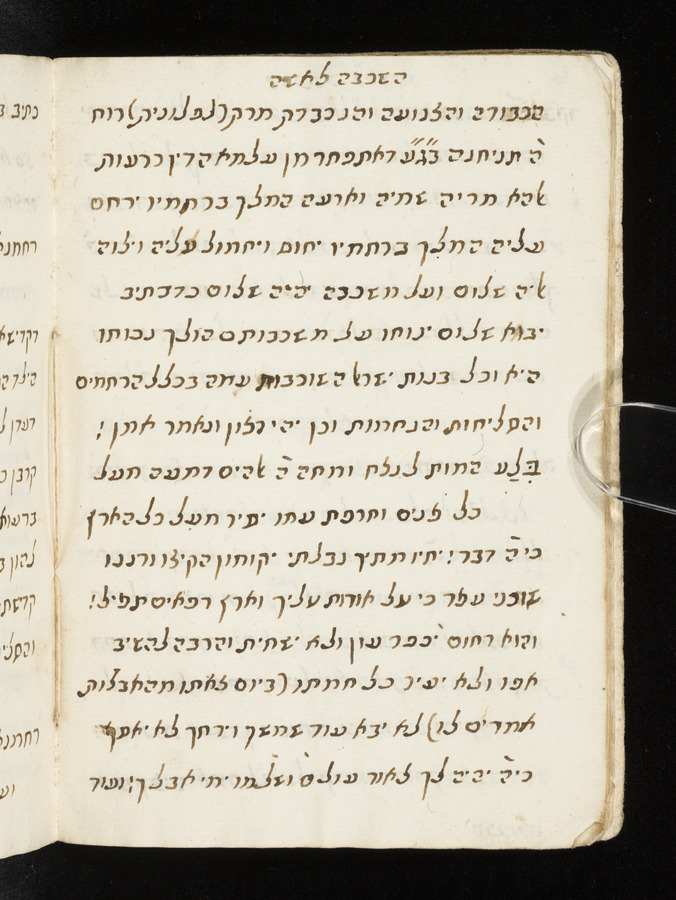 השכבה לאשה
הכבודה והצנועה והנכבדת מרת (לפלונית) רוח
ה׳ תניחנה בג״ע דאתפטרת מן עלמא הדין כרעות
אלהא מריה שמיה וארעה המלך ברחמיו ירחם
עליה המלך ברחמיו יחוס ויחמול עליה וילוה
אליה שלום ועל משכבה יהיה שלום כדכתיב
יבוא שלום ינוחו על משכבותם הולך נכוחו
היא וכל בנות ישראל השוכבות עמה בכלל הרחמים
והסליחות והנחמות וכן יהי רצון ונאמר אמן:
בלע המות לנצח ומחה ה׳ אלהים דמעה מעל
כל פנים וחרפת עמו יסיר מעל כל הארץ
כי ה׳ דבר: יחיו מתיך נבלתי יקומון הקיצו ורננו
שוכני עפר כי טל אורות טליך וארץ רפאים תפיל:
והוא רחום יכפר עון ולא ישחית והרבה להשיב
אפו ולא יעיר כל חמתו (ביום צאתו מהאבלות
אמרים לו) לא יבא עוד שמשך וירחך לא יאסף
כי ה׳ יהיה לך לאור עולם ושלמו ימי אבלך: ועוד